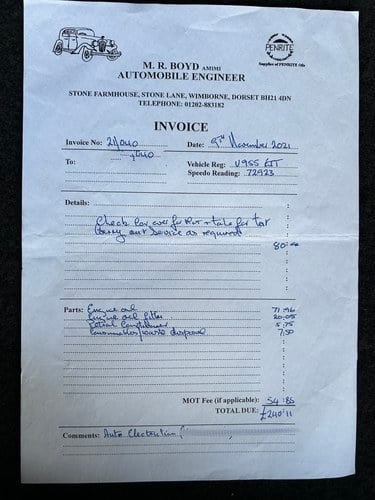 PENRITE
Supplier of PENRITE Oils
M. R. BOYD AMIMI
AUTOMOBILE ENGINEER
STONE FARMHOUSE, STONE LANE, WIMBORNE, DORSET BH21 4DN
TELEPHONE: 01202-883182
INVOICE
Invoice No: 21/040 Date: 9TH November 2021
To: Vehicle Reg:
Speedo Reading: 72923
Details:
Check car over for MOT + take for test
Carry out service as required
80=00
Parts: Engine oil 71.96
Engine oil filter 20.05
5.75
Consumables/waste disposal 7.50
MOT Fee (if applicable): 54.85
TOTAL DUE: £240.11
Comments: Auto Electrician